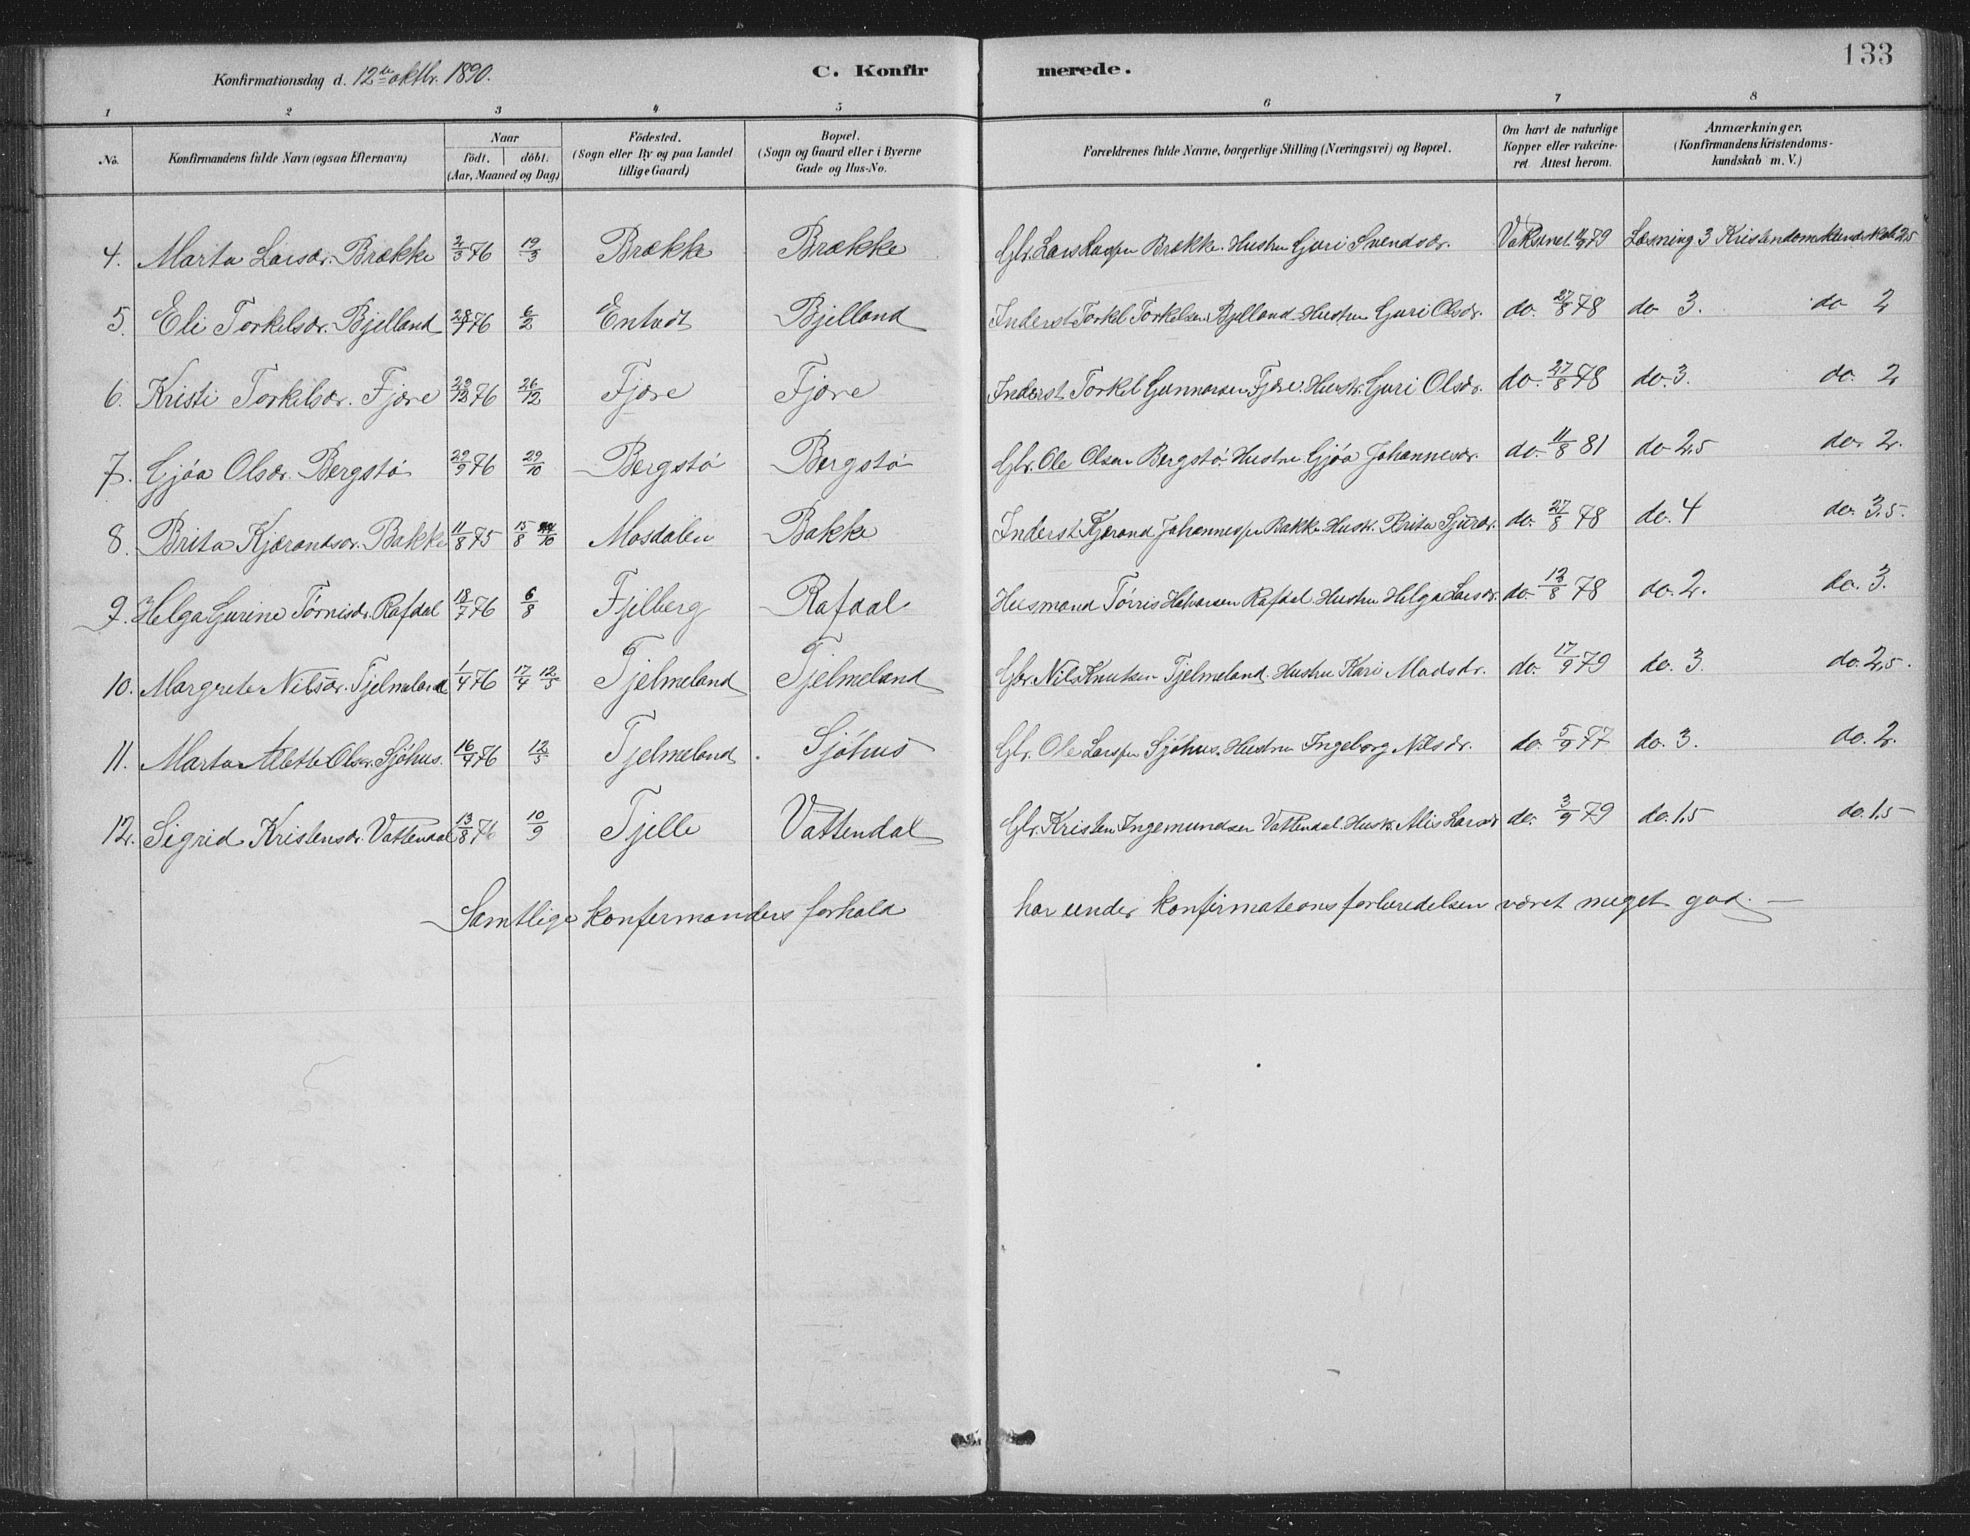 133
Konfirmationsdag d. 12te oktbr. 1890. C. Konfirmerede.
1 2 3 4 5 6 7 8
No. Konfirmandens fulde Navn (ogsaa Efternavn) Naar födt. döbt. (Aar, Maaned og Dag) Födested. (Sogn eller By og paa Landet tillige Gaard) Bopæl. (Sogn og Gaard eller i Byerne Gade og Hus-No. Forældrenes fulde Navne, borgerlige Stilling (Næringsvei) og Bopæl. Om havt de naturlige Kopper eller vakcineret Attest herom. Anmærkninger. (Konfirmandens Kristendomskundskab m. V.)
4. Marta Larsdr. Brække 2/3 76 19/3 Brække Brække Gbr. Lars Larssen Brække. Hustru Guri Svendsdr. Vaksinet 79 Læsning 3 Kristendomskundskab 2,5
5. Eli Torkelsdr. Bjelland 28/1 76 6/2 Entvedt Bjelland Inderst Torkel Torkelsen Bjelland. Hustru Guri Olsdr. do. 27/8 78 do 3. do 2
6. Kristi Torkilsdr. Fjære 76 26/12 Fjære Fjære Inderst Torkel Gunnarsen Fjære. Hustr. Guri Olsdr. do. 27/8 78 do. 3. do. 2
7. Gjøa Olsdr. Bergstø 29/9 76 29/10 Bergstø Bergstø Gbr. Ole Olsen Bergstø. Hustru Gjøa Johannesdr. do. 11/8 81 do 2,5 do. 2.
8. Brita Kjærandsdr. Bakke 11/8 75 15/8 Mosdalen Bakke Inderst Kjærand Johannessen Bakke Hustr. Brita Sjursdr. do. 27/8 78 do. 4 do. 3,5.
9. Helga Gurine Tørrisdr. Rafdal 18/7 76 6/8 Fjelberg Rafdal Husmand Tørris Halvorsen Rafdal. Hustru Helga Larsdr. do. 12/8 78 do. 2. do. 3.
10. Margrete Nilsdr. Tjelmeland 1/4 76 17/4 12/5 Tjelmeland Tjelmeland Gbr Nils Knutsen Tjelmeland. Hustru Kari Madsdr. do. 17/9 79 do. 3 do. 2,5.
11. Marta Alette Olsdr. Sjøhus. 16/4 76 12/5 Tjelmeland. Sjøhus Gbr. Ole Larssen Sjøhus. Hustru Ingeborg Nilsdr. do. 5/9 77 do. 3. do. 2.
12. Sigrid Kristensdr. Vattendal 13/8 76 10/9 Tjelle Vattendal Gbr. Kristen Ingemundsen Vattendal. Hustr. Alis Larsdr do. 3/9 79 do. 1,5 do. 1,5
Samtlige konfirmanders forhold har under konfirmationsforberedelsen været meget god.